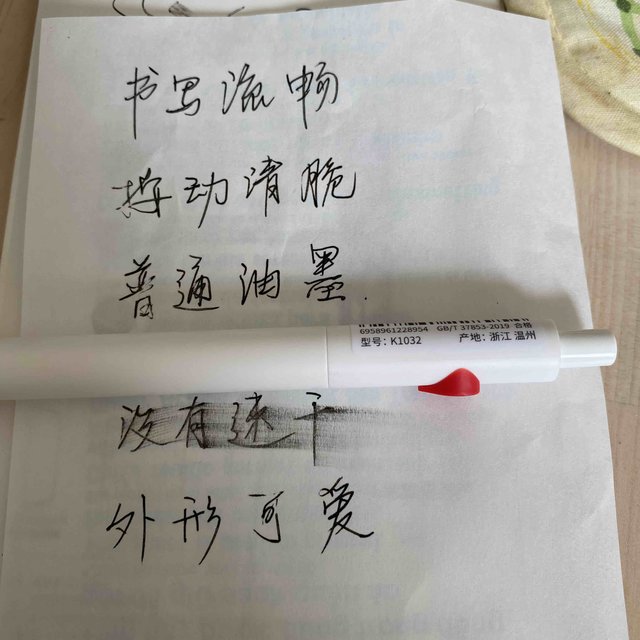 书写流畅
按动清脆
普通油墨.
6958961228954 GB/T 37853-2019 合格
型号: K1032 产地: 浙江 温州
没有速干
外形可爱